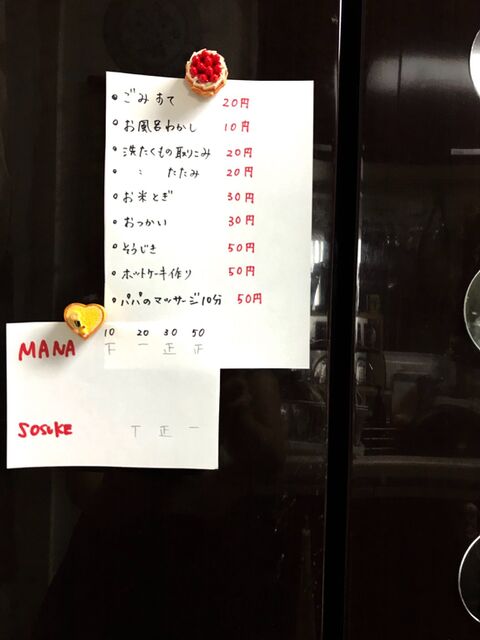 • ごみすて 20円
• お風呂わかし 10円
• 洗たくもの取りこみ 20円
• 〃 たたみ 20円
• お米とぎ 30円
• おつかい 30円
• そうじき 50円
• ホットケーキ作り 50円
• パパのマッサージ10分 50円
10 20 30 50
MANA 下 一 正 正
SOSUKE 丅 正 一